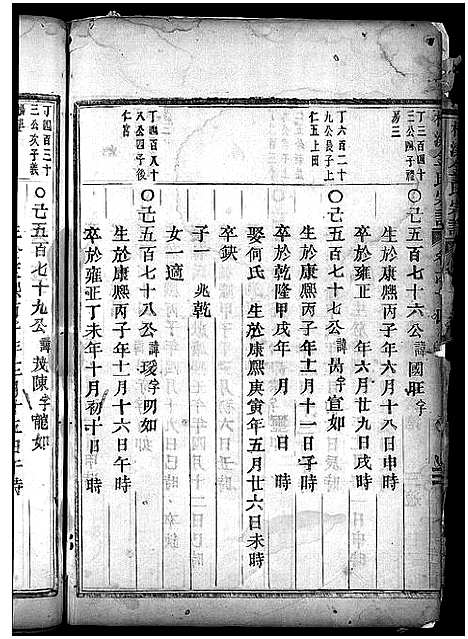 丁三百四十
三公四子禮
易三
〇己五百七十六公諱國旺字
生於康熙丙子年六月十八日申時
卒於雍正 年六月廿九日戌時
丁六百二十
九公長子上
仁五上田
〇己五百七十七公諱 字宣如
生於康熙丙子年十二月十一日子時
卒於乾隆甲戌年 月 日 時
娶何氏 生於康熙庚寅年五月廿六日未時
卒缺
子一 兆乾
女一適
丁四百八十
八公四子後
仁宮
〇己五百七十八公諱 字明如
生於康熙丙子年十一月十六日午時
卒於雍正丁未年十月初十日 時
丁四百三十
三公次子義
〇己五百七十九公諱 陳字龍如